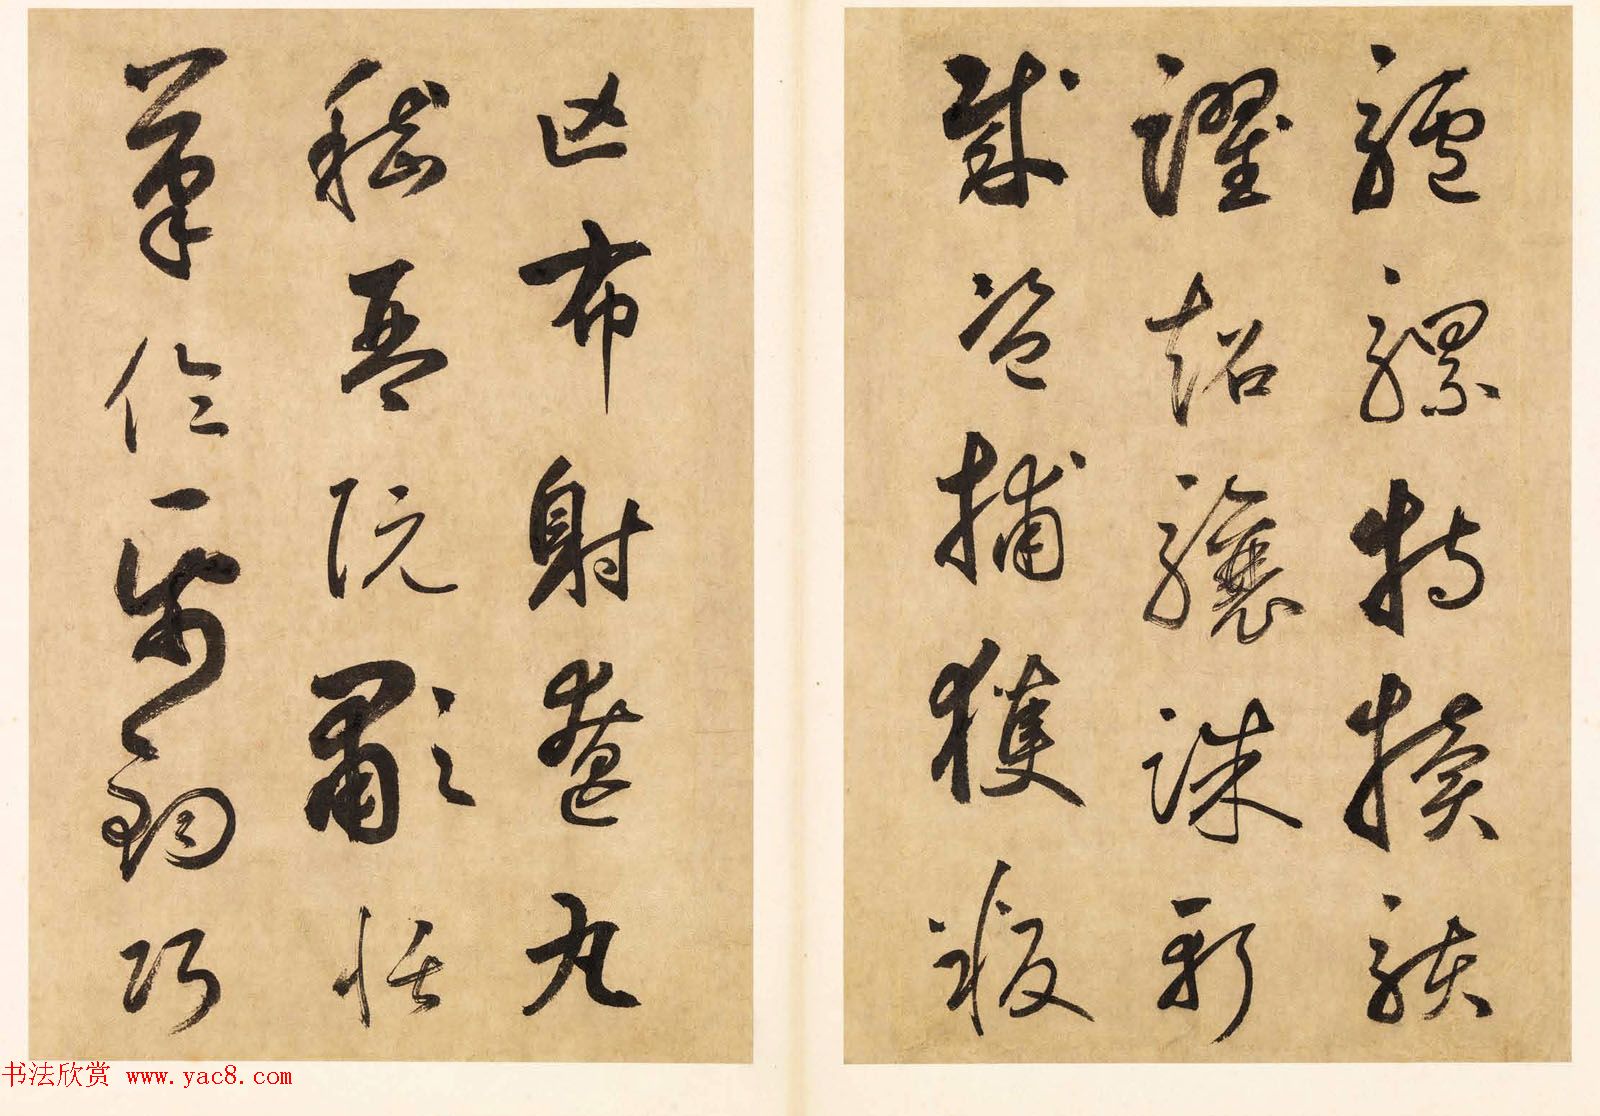 驢騾特犢駭
躍超驤誅斬
賊盜捕獲叛
亡布射遼丸
嵇琴阮嘯恬
筆倫紙鈞巧
书法欣赏 www.yac8.com